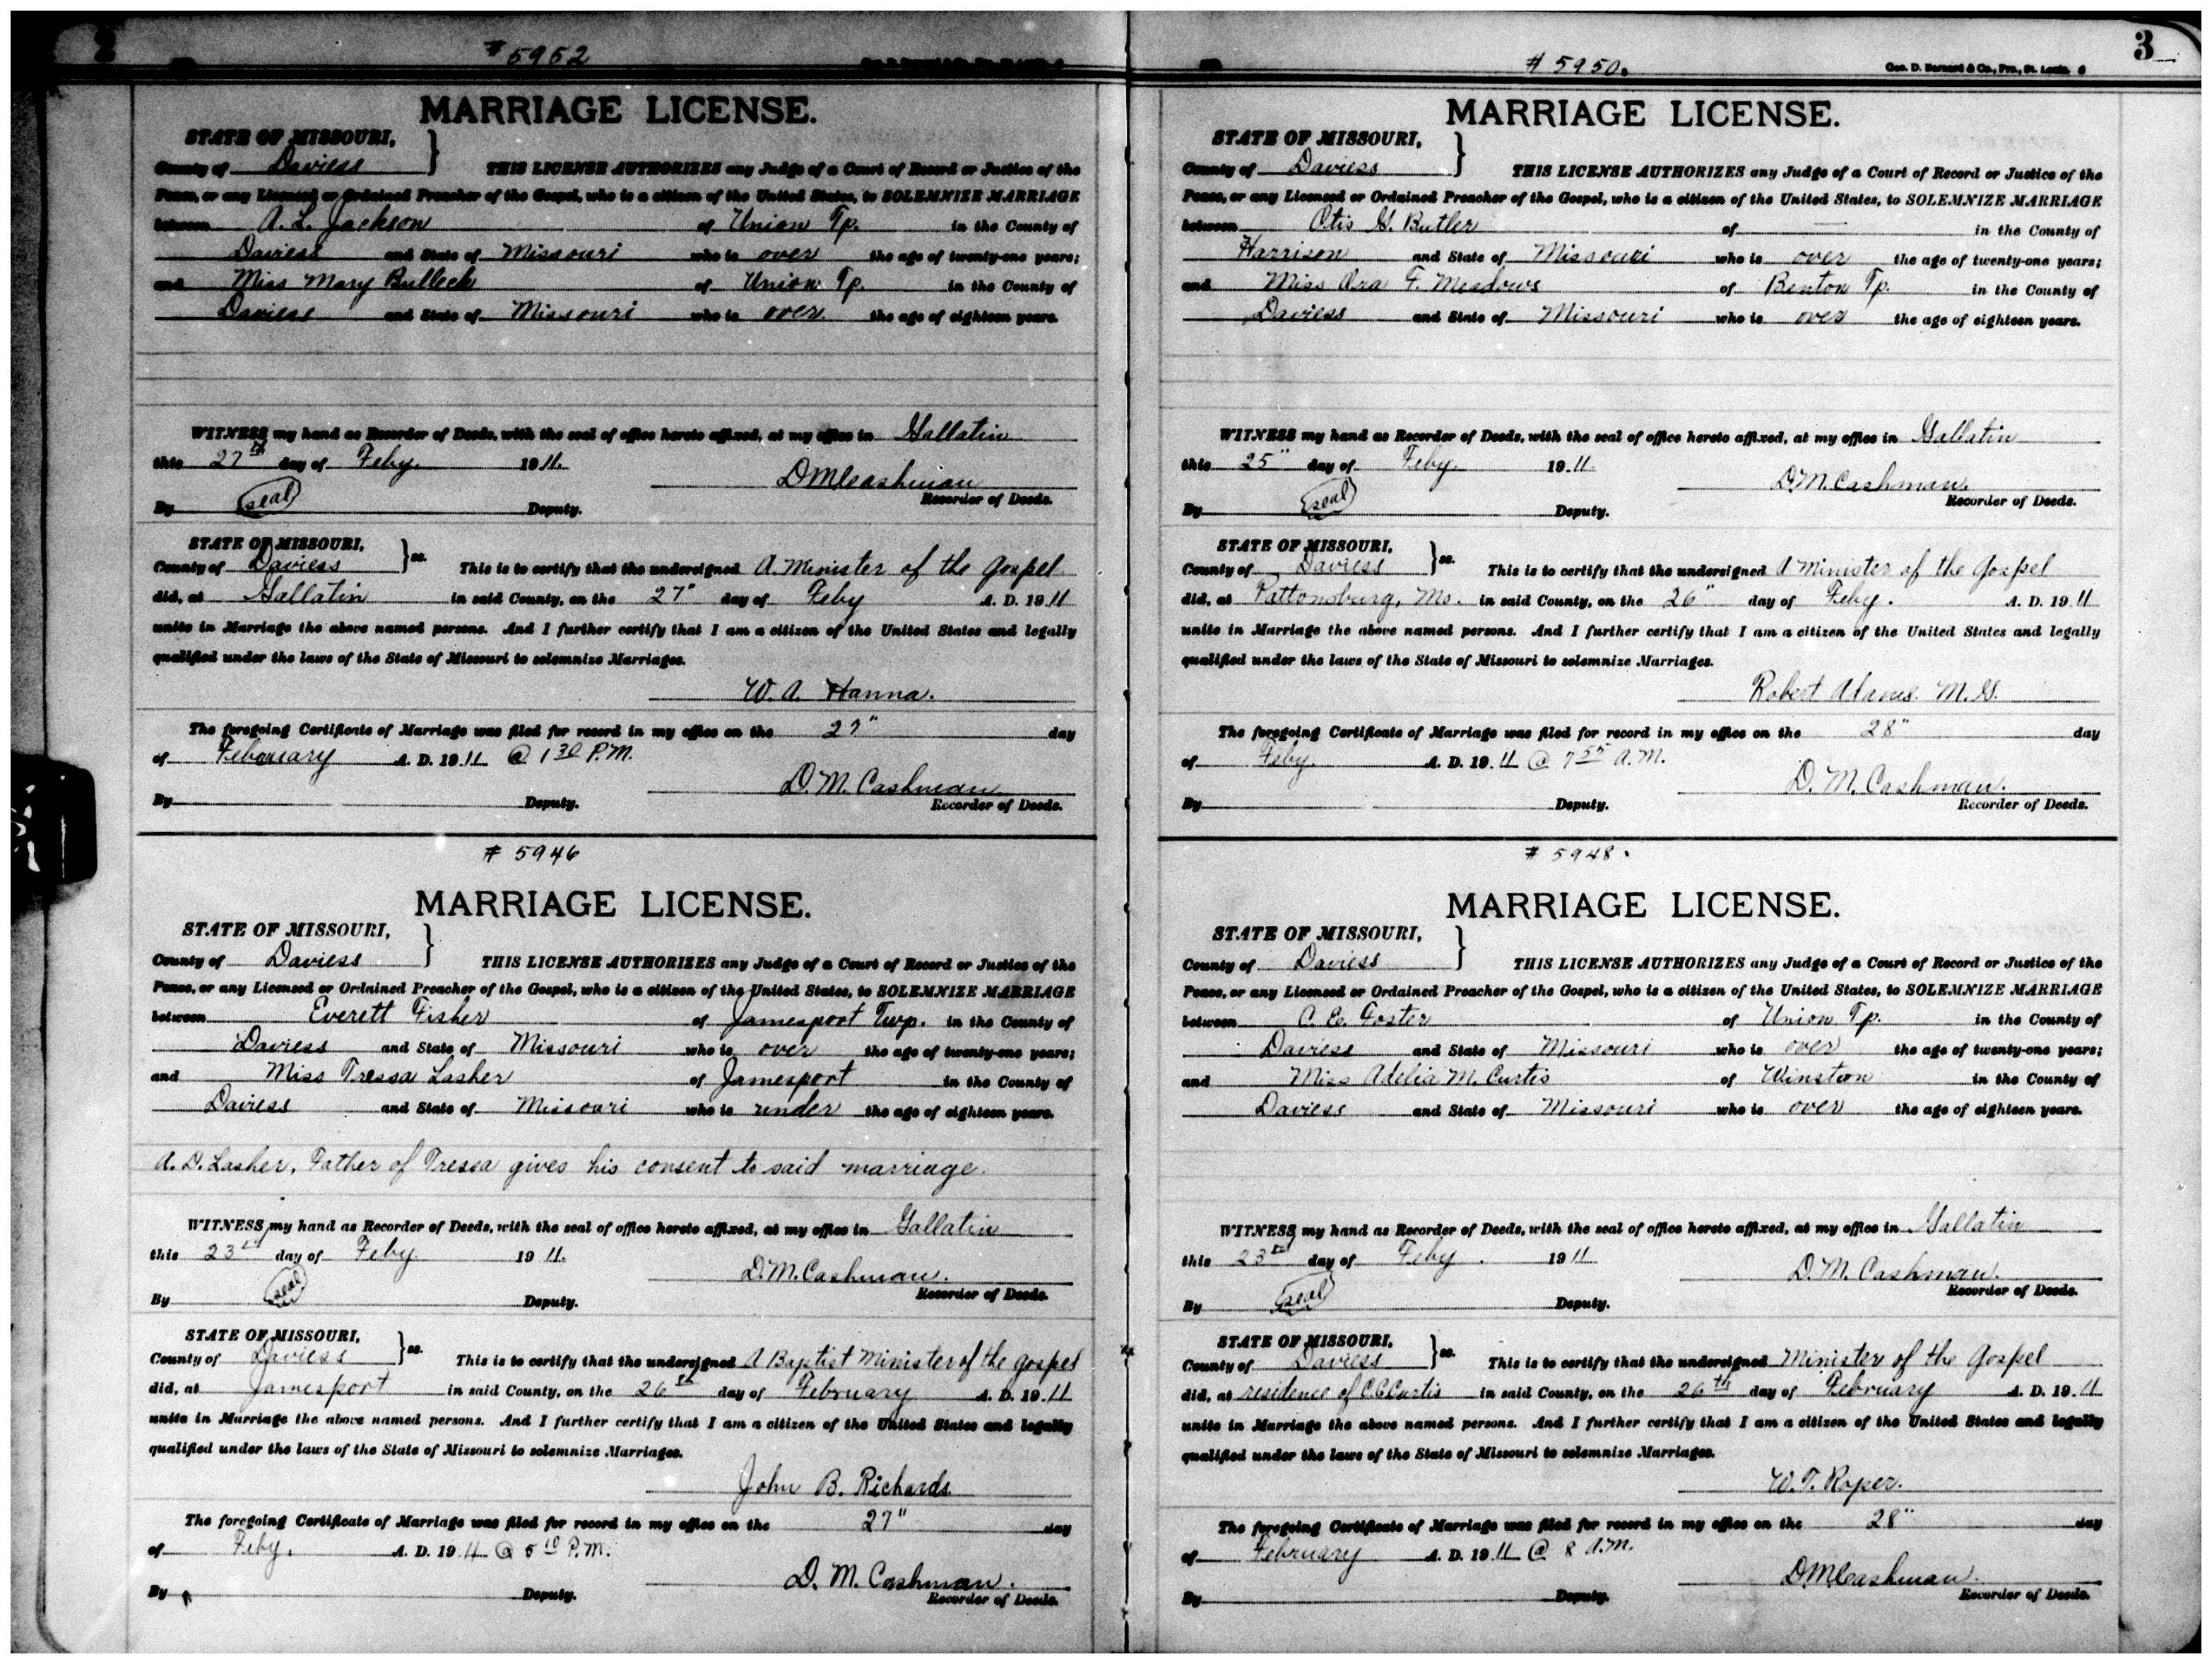 2
# 5952
MARRIAGE LICENSE.
STATE OF MISSOURI,
County of Daviess } THIS LICENSE AUTHORIZES any Judge of a Court of Record or Justice of the
Peace, or any Licensed or Ordained Preacher of the Gospel, who is a citizen of the United States, to SOLEMNIZE MARRIAGE
between A. L. Jackson of Union Tp. in the County of
Daviess and State of Missouri who is over the age of twenty-one years;
and Miss Mary Bulleck of Union Tp. in the County of
Daviess and State of Missouri who is over the age of eighteen years.
WITNESS my hand as Recorder of Deeds, with the seal of office hereto affixed, at my office in Gallatin
this 27th day of Feby. 1911.
D M Cashman
Recorder of Deeds.
By (seal) Deputy.
STATE OF MISSOURI,
County of Daviess } ss. This is to certify that the undersigned A Minister of the Gospel
did, at Gallatin in said County, on the 27" day of Feby A. D. 1911
unite in Marriage the above named persons. And I further certify that I am a citizen of the United States and legally
qualified under the laws of the State of Missouri to solemnize Marriages.
W. A. Hanna.
The foregoing Certificate of Marriage was filed for record in my office on the 27" day
of February A. D. 1911 @ 1 30 P.M.
D. M. Cashman
Recorder of Deeds.
By Deputy.
# 5946
MARRIAGE LICENSE.
STATE OF MISSOURI,
County of Daviess } THIS LICENSE AUTHORIZES any Judge of a Court of Record or Justice of the
Peace, or any Licensed or Ordained Preacher of the Gospel, who is a citizen of the United States, to SOLEMNIZE MARRIAGE
between Everett Fisher of Jamesport Twp. in the County of
Daviess and State of Missouri who is over the age of twenty-one years;
and Miss Tressa Lasher of Jamesport in the County of
Daviess and State of Missouri who is under the age of eighteen years.
A. D. Lasher, Father of Tressa gives his consent to said marriage.
WITNESS my hand as Recorder of Deeds, with the seal of office hereto affixed, at my office in Gallatin
this 23rd day of Feby. 1911.
D. M. Cashman.
Recorder of Deeds.
By (seal) Deputy.
STATE OF MISSOURI,
County of Daviess } ss. This is to certify that the undersigned A Baptist Minister of the gospel
did, at Jamesport in said County, on the 26th day of February A. D. 1911
unite in Marriage the above named persons. And I further certify that I am a citizen of the United States and legally
qualified under the laws of the State of Missouri to solemnize Marriages.
John B. Richards
The foregoing Certificate of Marriage was filed for record in my office on the 27" day
of Feby. A. D. 1911 @ 5 10 P.M.
D. M. Cashman.
Recorder of Deeds.
By Deputy.
3
# 5950.
Geo. D. Barnard & Co., Pre., St. Louis. 6
MARRIAGE LICENSE.
STATE OF MISSOURI,
County of Daviess } THIS LICENSE AUTHORIZES any Judge of a Court of Record or Justice of the
Peace, or any Licensed or Ordained Preacher of the Gospel, who is a citizen of the United States, to SOLEMNIZE MARRIAGE
between Otis G. Butler of in the County of
Harrison and State of Missouri who is over the age of twenty-one years;
and Miss Ora F. Meadows of Benton Tp. in the County of
Daviess and State of Missouri who is over the age of eighteen years.
WITNESS my hand as Recorder of Deeds, with the seal of office hereto affixed, at my office in Gallatin
this 25" day of Feby. 1911.
D. M. Cashman.
Recorder of Deeds.
By (seal) Deputy.
STATE OF MISSOURI,
County of Daviess } ss. This is to certify that the undersigned A minister of the Gospel
did, at Pattonsburg, Mo. in said County, on the 26" day of Feby. A. D. 1911
unite in Marriage the above named persons. And I further certify that I am a citizen of the United States and legally
qualified under the laws of the State of Missouri to solemnize Marriages.
Robert Adams. M. G.
The foregoing Certificate of Marriage was filed for record in my office on the 28" day
of Feby. A. D. 1911 @ 7 55 A.M.
D. M. Cashman.
Recorder of Deeds.
By Deputy.
# 5948.
MARRIAGE LICENSE.
STATE OF MISSOURI,
County of Daviess } THIS LICENSE AUTHORIZES any Judge of a Court of Record or Justice of the
Peace, or any Licensed or Ordained Preacher of the Gospel, who is a citizen of the United States, to SOLEMNIZE MARRIAGE
between C. E. Foster of Union Tp. in the County of
Daviess and State of Missouri who is over the age of twenty-one years;
and Miss Adelia M. Curtis of Winston in the County of
Daviess and State of Missouri who is over the age of eighteen years.
WITNESS my hand as Recorder of Deeds, with the seal of office hereto affixed, at my office in Gallatin
this 23rd day of Feby. 1911
D. M. Cashman.
Recorder of Deeds.
By (seal) Deputy.
STATE OF MISSOURI,
County of Daviess } ss. This is to certify that the undersigned Minister of the Gospel
did, at residence of C C Curtis in said County, on the 26th day of February A. D. 1911
unite in Marriage the above named persons. And I further certify that I am a citizen of the United States and legally
qualified under the laws of the State of Missouri to solemnize Marriages.
W. T. Roper.
The foregoing Certificate of Marriage was filed for record in my office on the 28" day
of February A. D. 1911 @ 8 A.M.
D M Cashman.
Recorder of Deeds.
By Deputy.